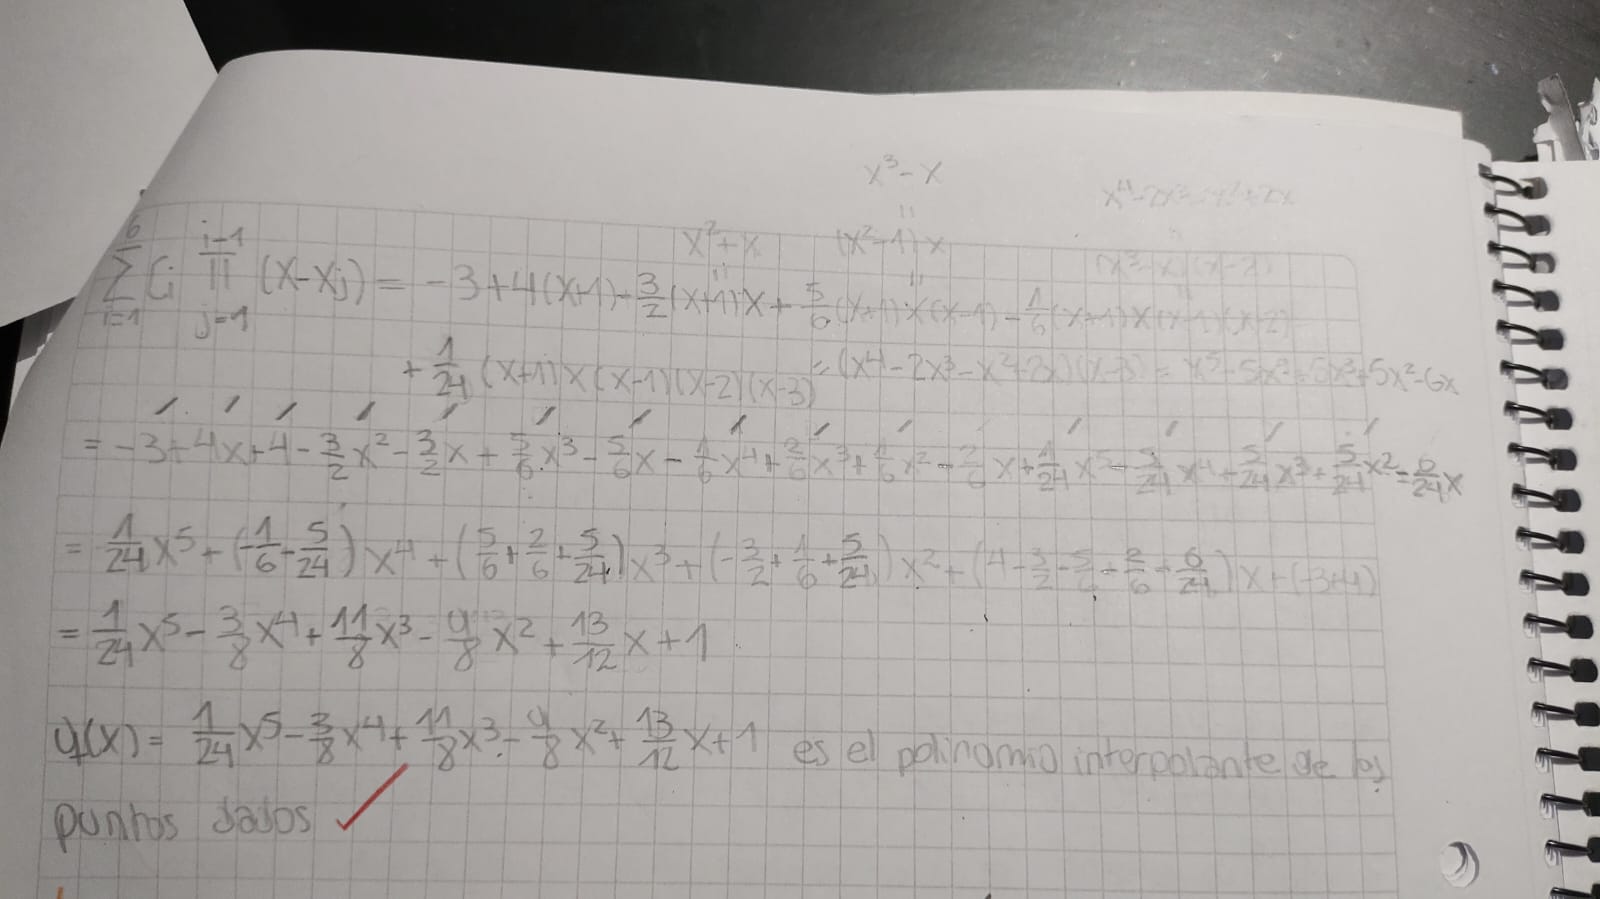 x³-x
x⁴-2x³-x²+2x
x²+x
(x²-1)x
(x³-x)(x-2)
6 i-1
Σ Cᵢ Π (x-xⱼ) = -3+4(x+1)-3/2(x+1)x+5/6(x+1)x(x-1)-1/6(x+1)x(x-1)(x-2)
i=1 j=1
+1/24(x+1)x(x-1)(x-2)(x-3) = (x⁴-2x³-x²+2x)(x-3) = x⁵-5x⁴+5x³+5x²-6x
= -3+4x+4-3/2x²-3/2x+5/6x³-5/6x-1/6x⁴+2/6x³+1/6x²-2/6x+1/24x⁵-5/24x⁴+5/24x³+5/24x²-6/24x
= 1/24x⁵+(-1/6-5/24)x⁴+(5/6+2/6+5/24)x³+(-3/2+1/6+5/24)x²+(4-3/2-5/6-2/6-6/24)x+(-3+4)
= 1/24x⁵-3/8x⁴+11/8x³-9/8x²+13/12x+1
q(x)= 1/24x⁵-3/8x⁴+11/8x³-9/8x²+13/12x+1 es el polinomio interpolante de los
puntos dados ✓